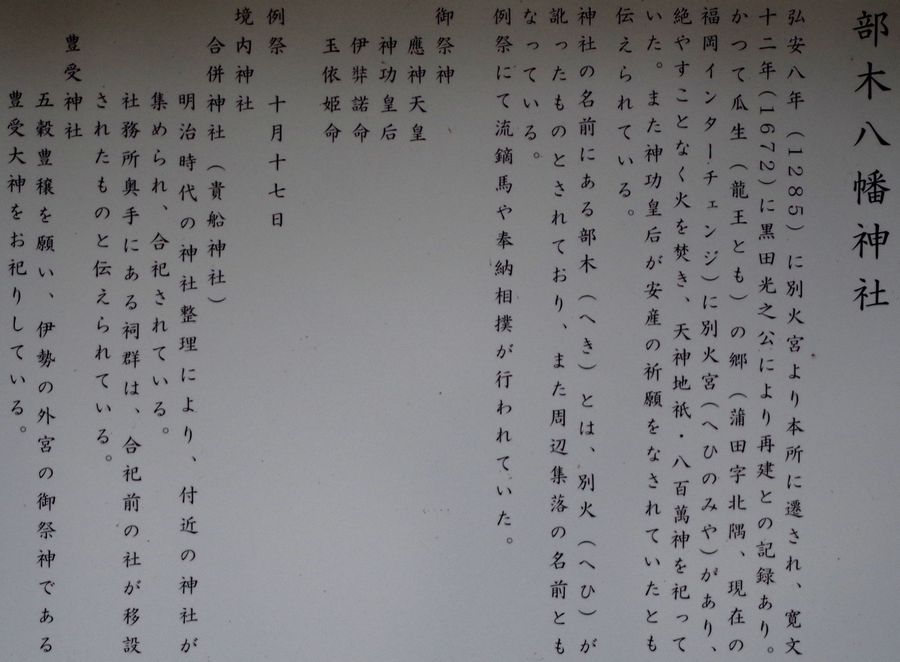 部木八幡神社
弘安八年（1285）に別火宮より本所に遷され、寛文
十二年（1672）に黒田光之公により再建との記録あり。
かつて瓜生（龍王とも）の郷（蒲田字北隅、現在の
福岡インターチェンジ）に別火宮（へひのみや）があり、
絶やすことなく火を焚き、天神地祇・八百萬神を祀って
いた。また神功皇后が安産の祈願をなされていたとも
伝えられている。
神社の名前にある部木（へき）とは、別火（へひ）が
訛ったものとされており、また周辺集落の名前とも
なっている。
例祭にて流鏑馬や奉納相撲が行われていた。
御祭神
應神天皇
神功皇后
伊弉諾命
玉依姫命
例祭　十月十七日
境内神社
合併神社（貴船神社）
明治時代の神社整理により、付近の神社が
集められ、合祀されている。
社務所奥手にある祠群は、合祀前の社が移設
されたものと伝えられている。
豊受神社
五穀豊穣を願い、伊勢の外宮の御祭神である
豊受大神をお祀りしている。